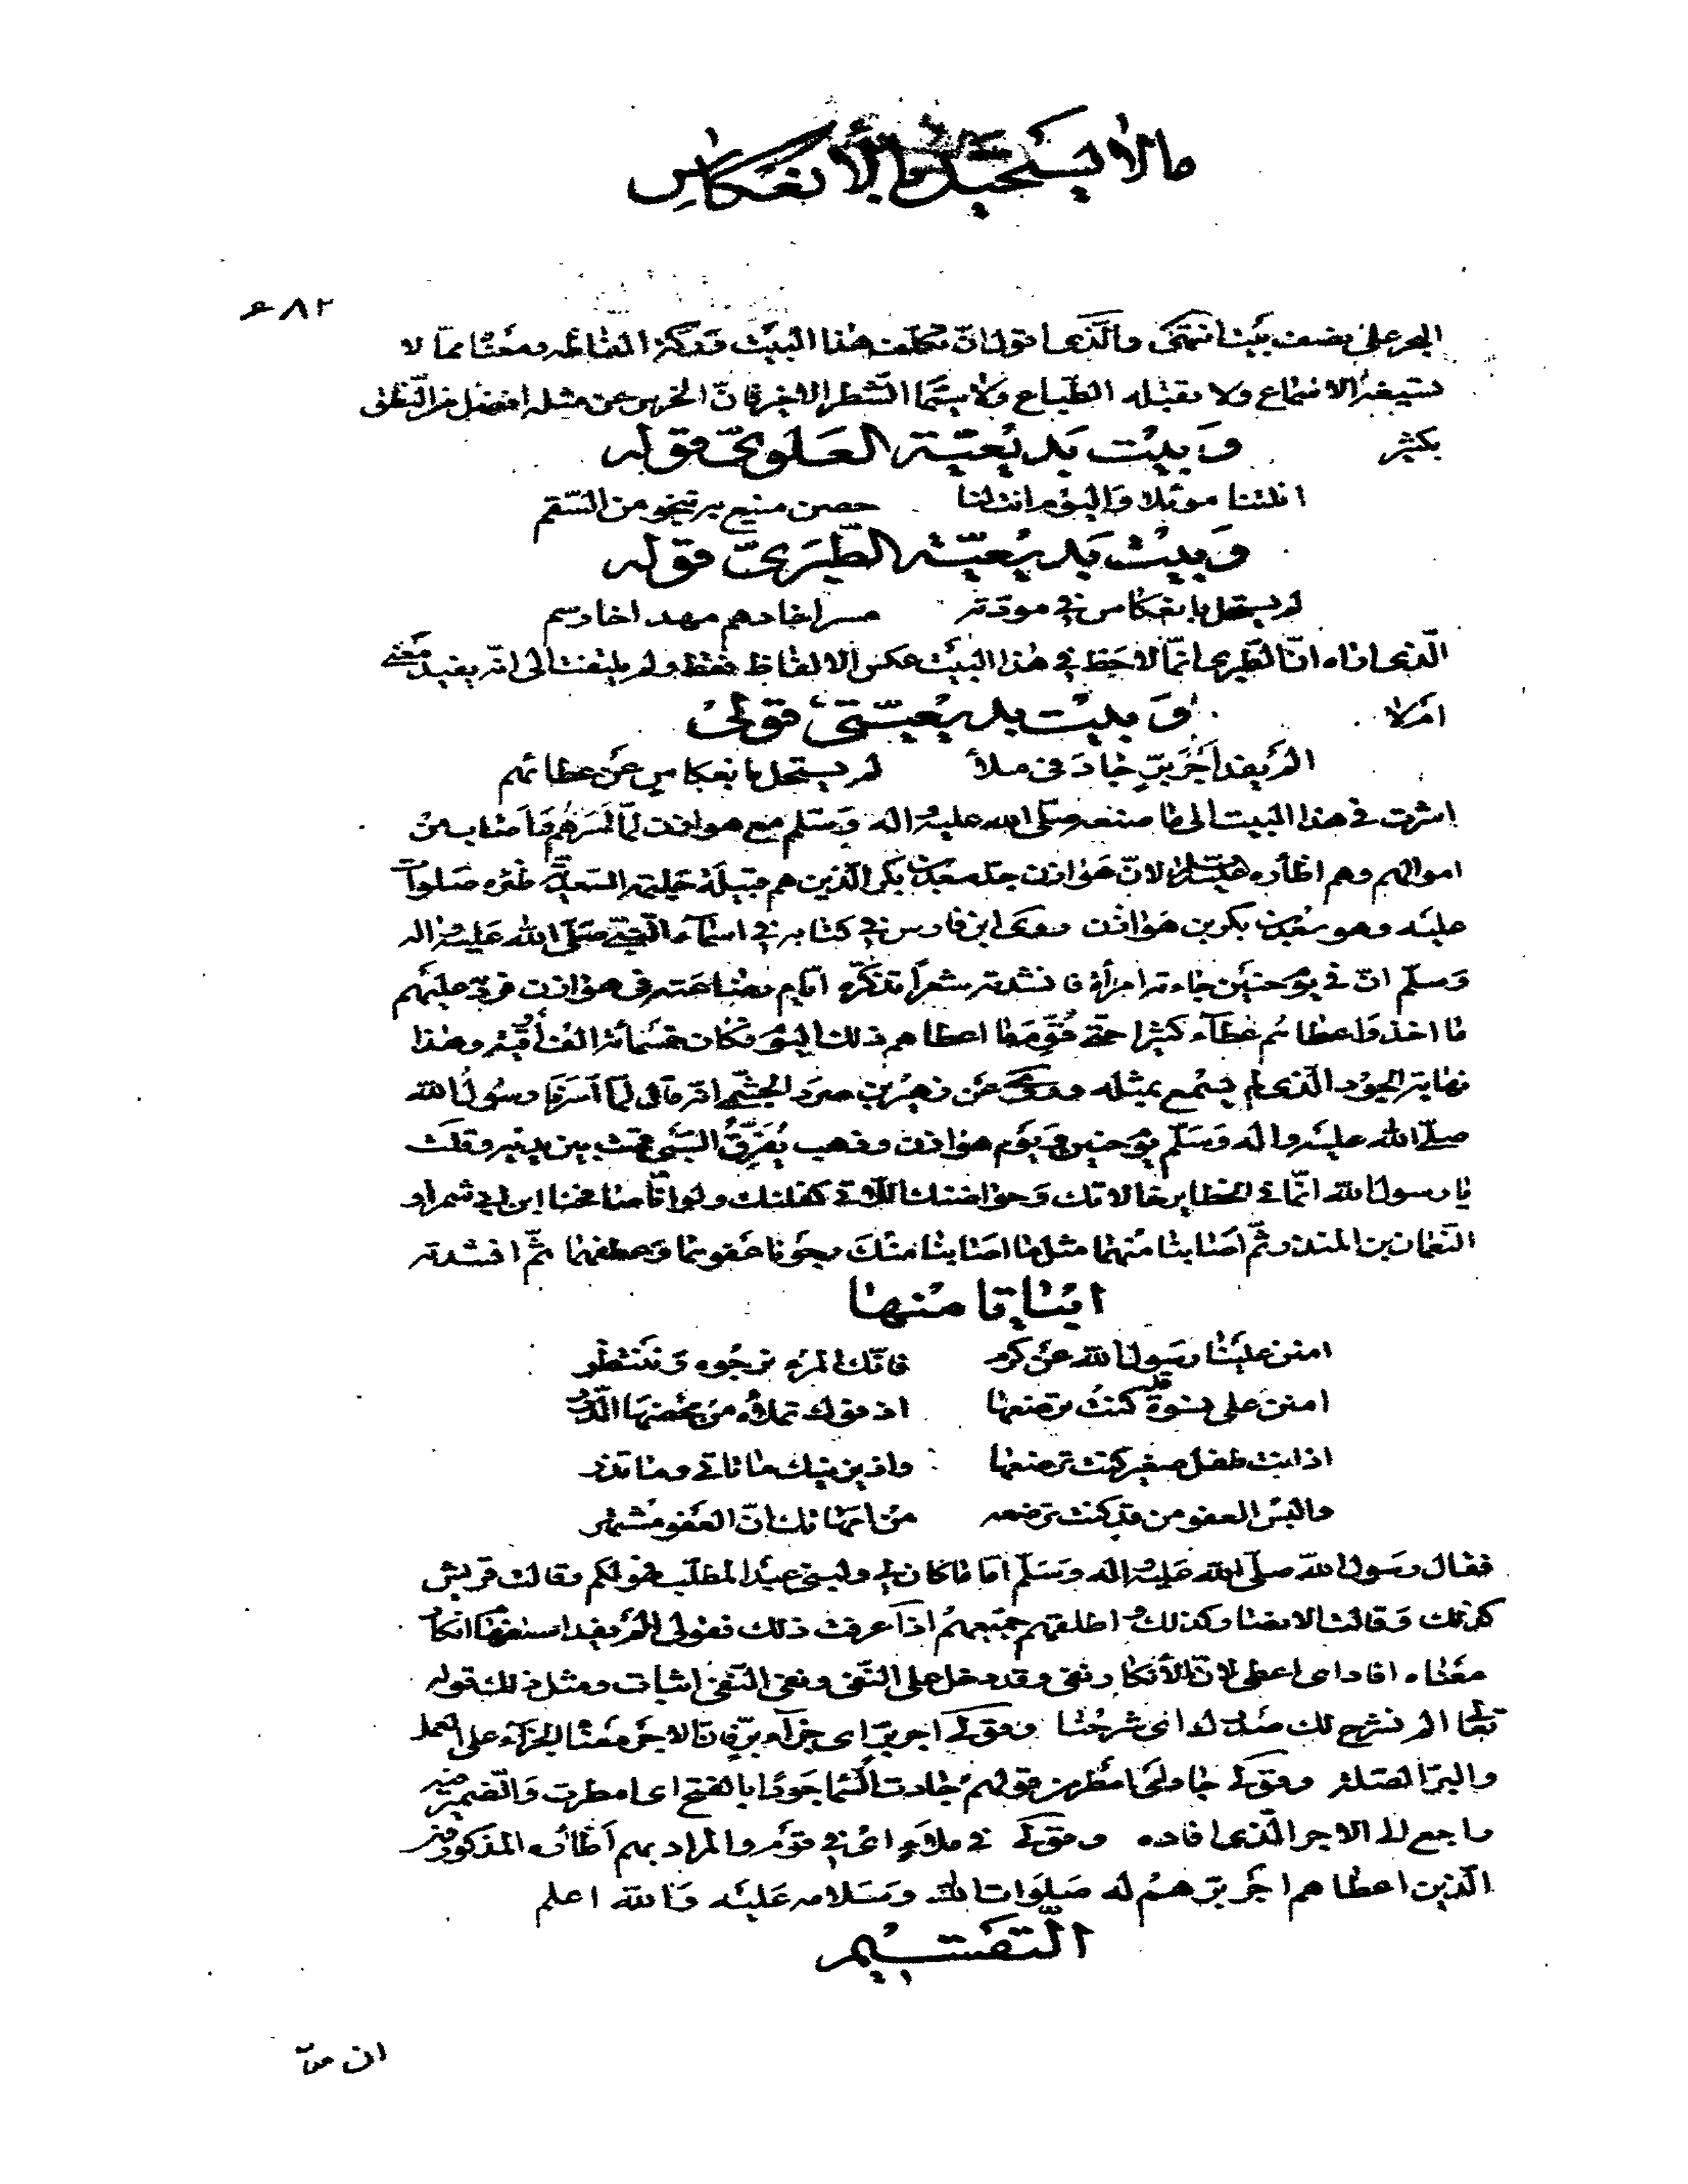 ما لا يستحيل بالانعكاس
٦٨٢
البحر على نصف بيت انتهى والذي اقول ان تكلف هذا البيت وفكة الفاظه ومعناه مما لا
تسيغه الاسماع ولا تقبله الطباع ولا سيما الشطر الاخير فان الخرس عن مثله افضل من النطق
بكثير وبيت بديعية العلوي قوله
انلتنا موئلا واليوم انت لنا حصن منيع به ننجو من السقم
وبيت بديعية الطبري قوله
لم يستحل بانعكاس في مودته مسر اخادهم مهد اخا رسم
الذي اراه ان الطبري انما لاحظ في هذا البيت عكس الالفاظ فقط ولم يلتفت الى انه يفيد معنى
ام لا وبيت بديعيتي قولي
الم يفد اجر بر جاد في ملأ لم يستحل بانعكاس عن عطائهم
اشرت في هذا البيت الى ما صنعه صلى الله عليه واله وسلم مع هوازن لما اسرهم واصاب من
اموالهم وهم اظآره لان هوازن جد سعد بن بكر الذين هم قبيلة حليمة السعدية ظئره صلوات
عليه وهو سعد بن بكر بن هوازن وحكى ابن فارس في كتابه في اسماء النبي صلى الله عليه واله
وسلم ان في يوم حنين جاءته امرأة فانشدته شعرا تذكره ايام رضاعته في هوازن فرد عليهم
ما اخذ واعطاهم عطاء كثيرا حتى قوم ما اعطاهم ذلك اليوم فكان خمسمائة الف اوقية وهذا
نهاية الجود الذي لم يسمع بمثله وروي عن زهير بن صرد الجشمي انه قال لما اسرنا رسول الله
صلى الله عليه واله وسلم يوم حنين يوم هوازن وذهب يفرق السبي قمت بين يديه وقلت
يا رسول الله انما في الحظاير خالاتك وحواضنك اللاتي كفلنك ولو انا مالحنا ابن ابي شمر او
النعمان بن المنذر ثم اصابنا منهما مثل ما اصابنا منك رجونا عفوهما وعطفهما ثم انشدته
ابياتا منها
امنن علينا رسول الله عن كرم فانك المرء نرجوه وننتظر
امنن على نسوة قد كنت ترضعها اذ فوك تملأه من محضها الدرر
اذ انت طفل صغير كنت ترضعها واذ يزينك ما تاتي وما تذر
والبس العفو من قد كنت ترضعه من امهاتك ان العفو مشتهر
فقال رسول الله صلى الله عليه واله وسلم اما ما كان لي ولبني عبد المطلب فهو لكم وقالت قريش
كذلك وقالت الانصار كذلك واطلقهم جميعهم اذا عرفت ذلك فقولي الم يفد استفهام انكار
معناه افاد اي اعطى لان الانكار نفي وقد دخل على النفي ونفي النفي اثبات ومثل ذلك قوله
تعالى الم نشرح لك صدرك اي شرحنا وقولي اجر بر اي جزاء بر فان الاجر معناه الجزاء على العمل
والبر الصلة وقولي جاد اي امطر من قولهم جادت السماء جودا بالفتح اي امطرت والضمير فيه
راجع الى الاجر الذي افاده وقولي في ملاء اي في قوم والمراد بهم اظآره المذكورون
الذين اعطاهم اجر برهم له صلوات الله وسلامه عليه والله اعلم
التقسيم